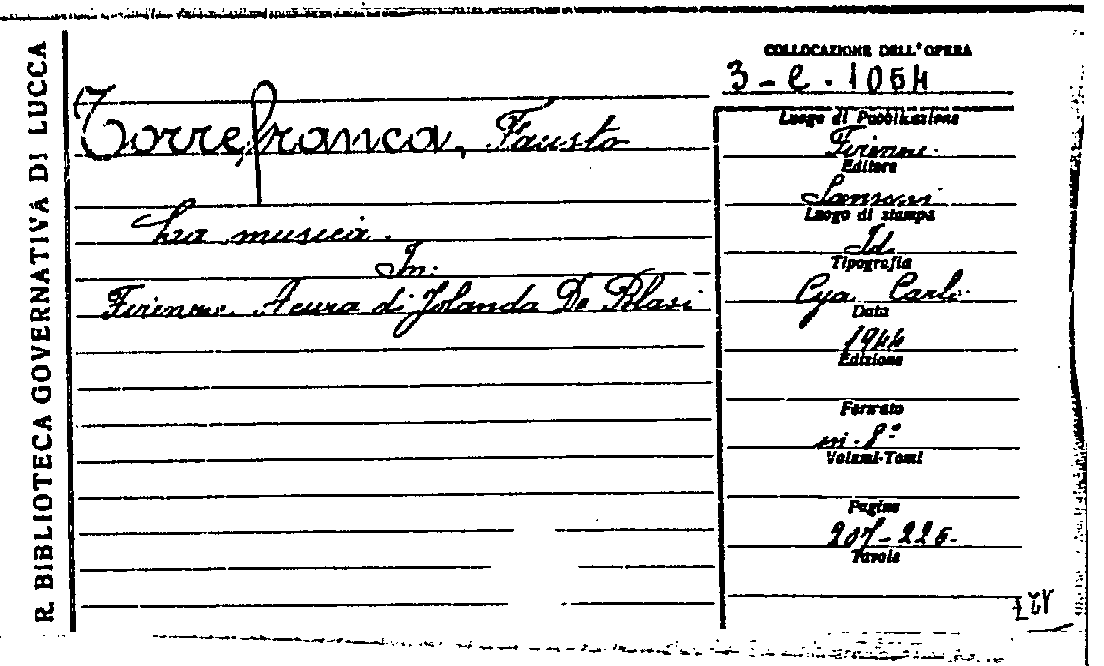 R. BIBLIOTECA GOVERNATIVA DI LUCCA
Torrefranca, Fausto
La musica.
In:
Firenze. A cura di Jolanda De Blasi
COLLOCAZIONE DELL'OPERA
3 - e. 1064
Luogo di Pubblicazione
Firenze.
Editore
Sansoni
Luogo di stampa
Id.
Tipografia
Cya Carlo.
Data
1944
Edizione
Formato
in-8°
Volumi-Tomi
Pagine
207-226.
Tavole